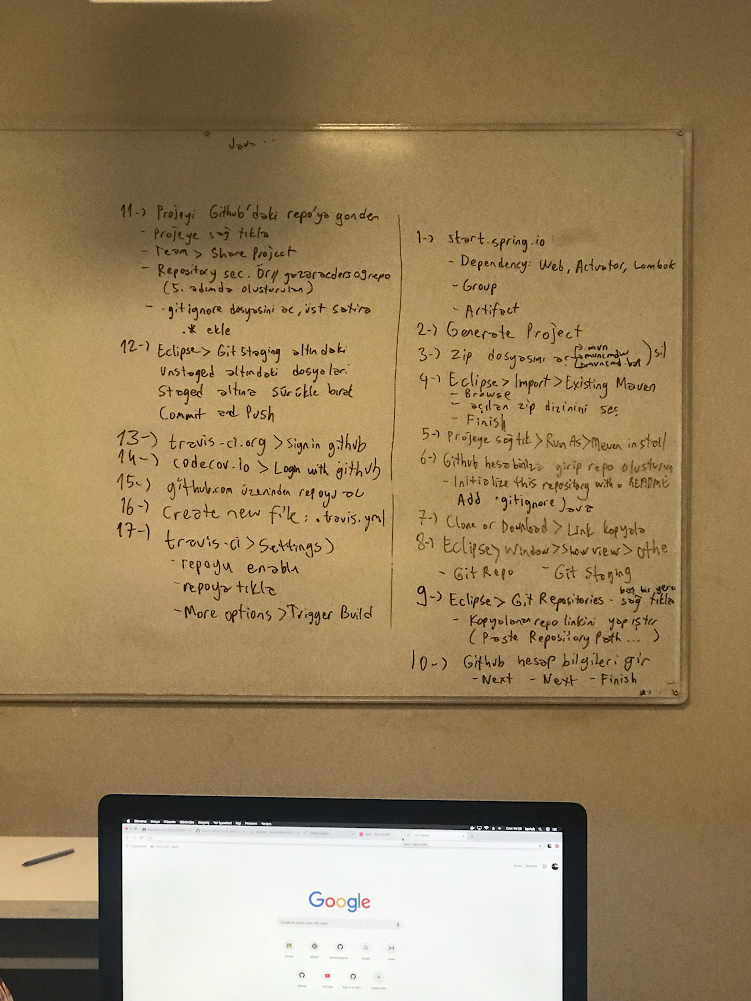 Java
11-) Projeyi Github'daki repo'ya gonder
- Projeye sağ tıkla
- Team > Share Project
- Repository sec.
(5. adımda olusturulan)
- .gitignore dosyasini ac, üst satira
.* ekle
12-) Eclipse > Git Staging altındaki
Unstaged altındaki dosyaları
Staged altına sürükle bırak
Commit and Push
13-) travis-ci.org > Sign in github
14-) codecov.io > Login with github
15-) github.com üzerinden repoyu ac
16-) Create new file: .travis.yml
17-) travis-ci > Settings)
- repoyu enable
- repoya tıkla
- More options > Trigger Build
1-) start.spring.io
- Dependency: Web, Actuator, Lombok
- Group
- Artifact
2-) Generate Project
3-) Zip dosyasını aç .mvn ) sil
4-) Eclipse > Import > Existing Maven
- Browse
- açılan zip dizinini seç
- Finish
5-) Projeye sağ tık > Run As > Maven install
6-) Github hesabiniza girip repo olusturun
- Initialize this repository with a README
Add .gitignore Java
7-) Clone or Download > Link kopyala
8-) Eclipse > Window > Show view > othe
- Git Repo - Git Staging
9-) Eclipse > Git Repositories - boş bir yere sağ tıkla
- Kopyalanan repo linkini yapıştır
(Paste Repository Path ... )
10-) Github hesap bilgileri gir
- Next - Next - Finish
Google